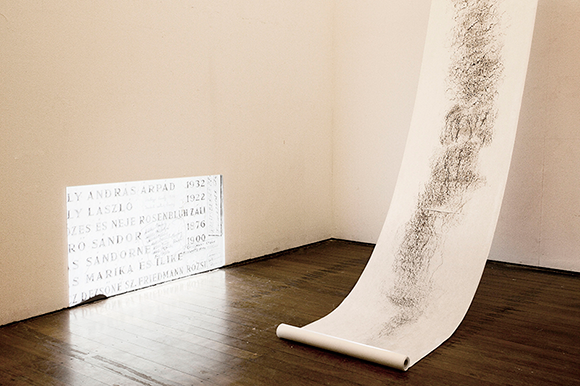 LY ANDRAS ARPAD 1932
LY LASZLO 1922
ZES ES NEJE ROSENBLUH ZALI
RO SANDOR 1876
S SANDORNE 1900
S MARIKA ES ILIRE
Z DEZSONE SZ. FRIEDMANN ROZSI